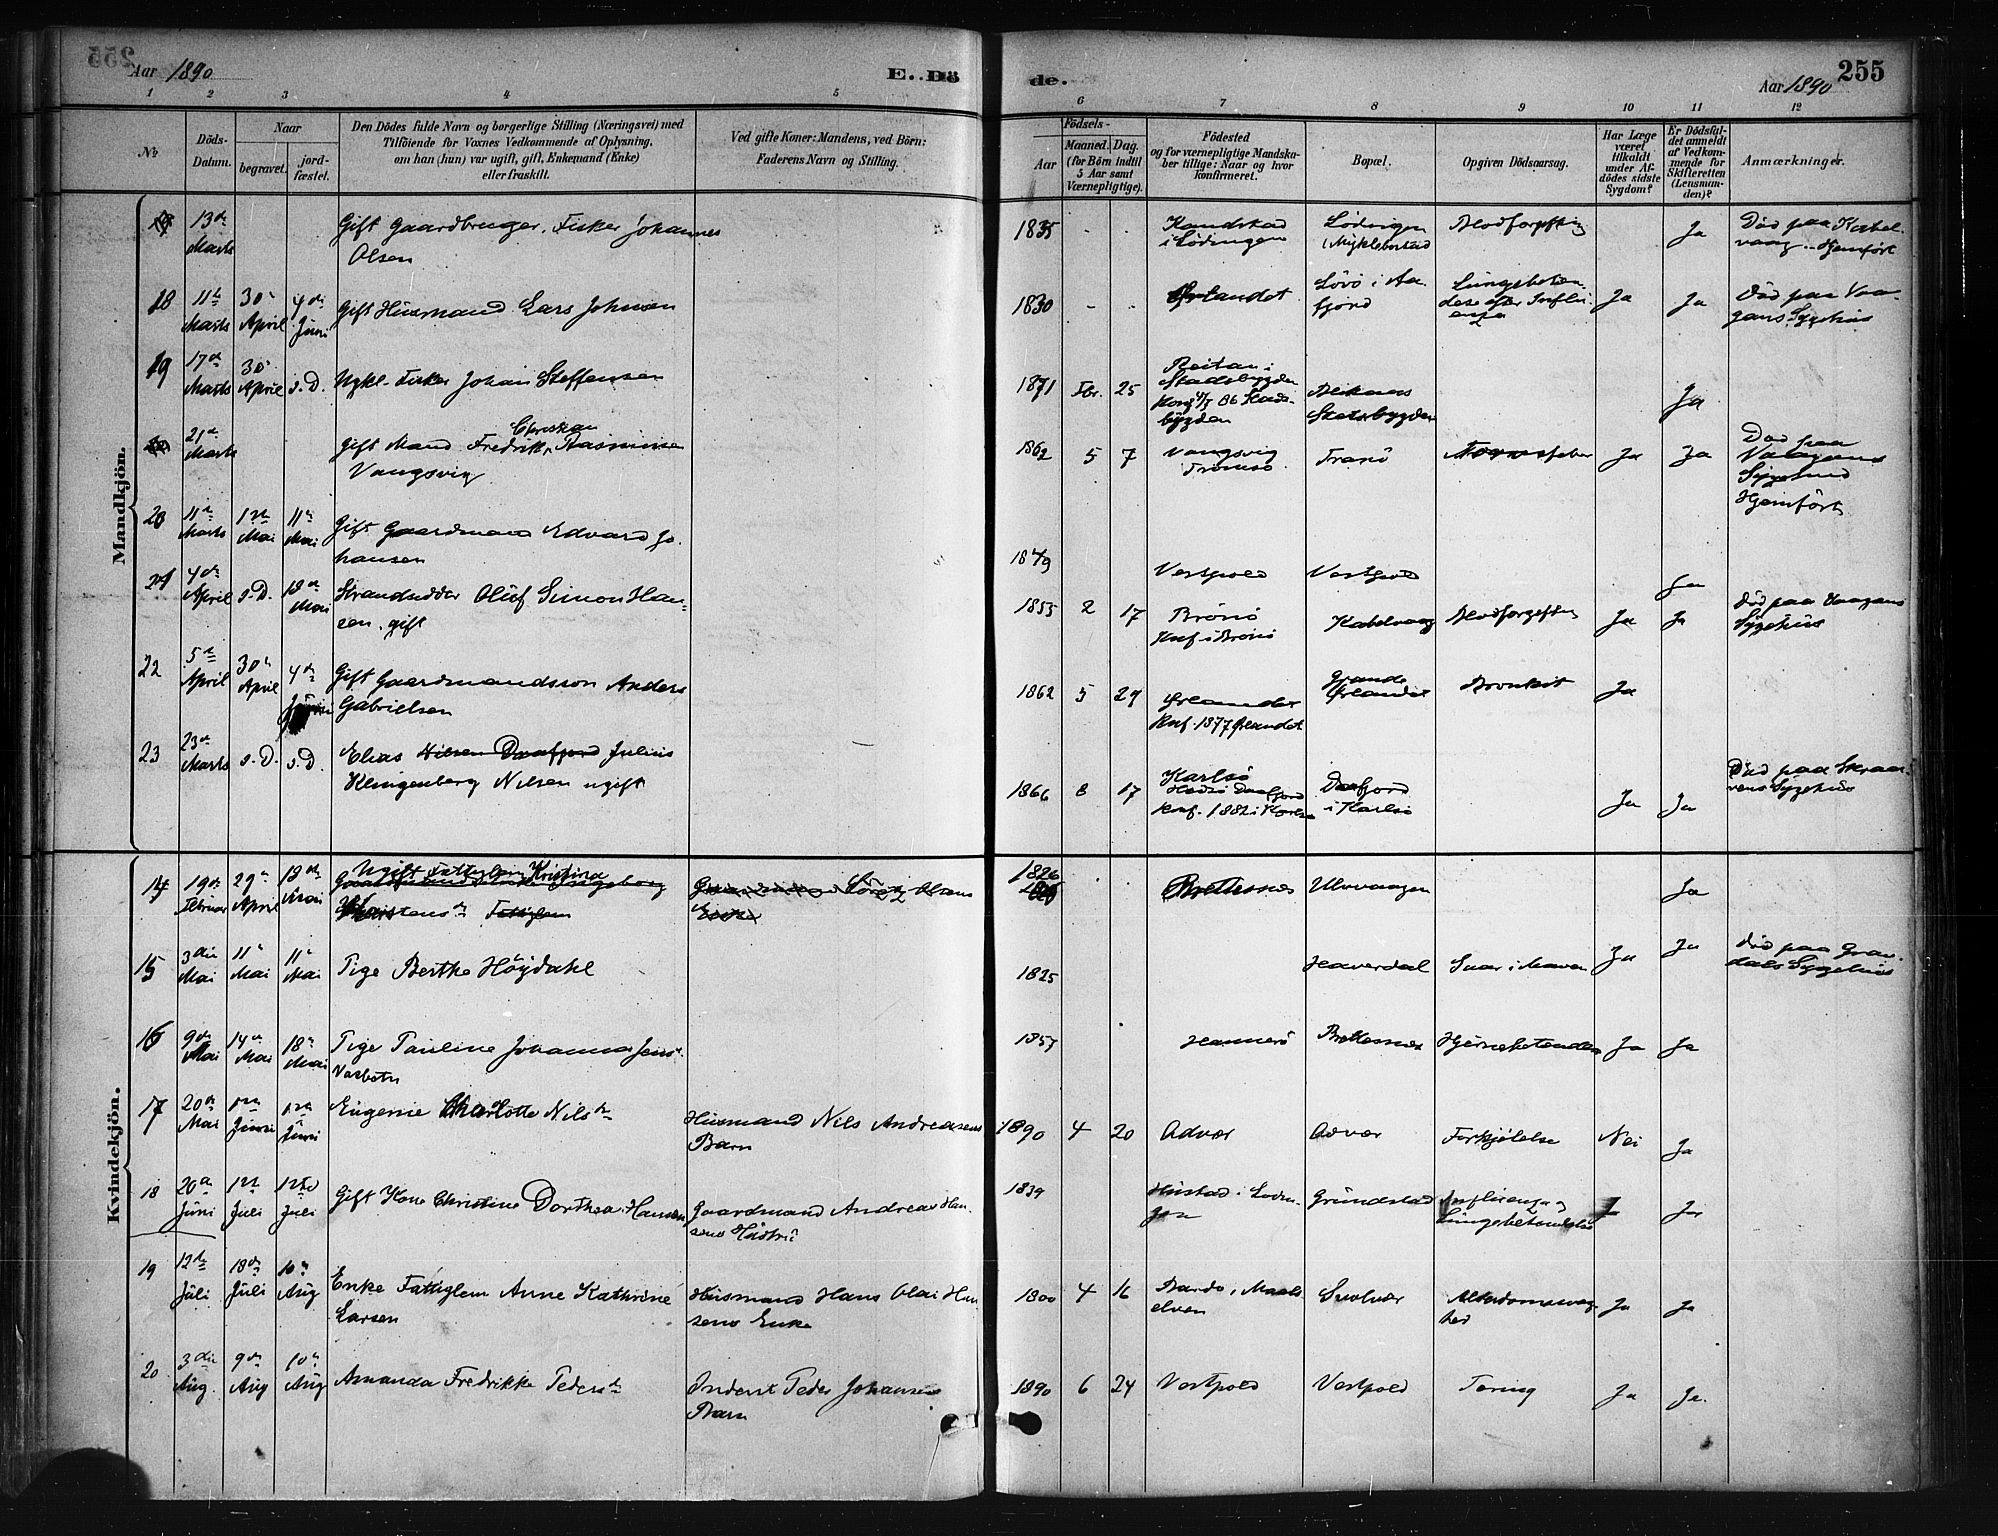 255
Aar 1890
E. Dö
de.
Aar 1890
255
1 2 3 4 5
6 7 8 9 10 11 12
№
Döds-
Datum.
Naar
begravet.
jord-
fæstet.
Den Dödes fulde Navn og borgerlige Stilling (Næringsvei) med
Tilföiende for Voxnes Vedkommende af Oplysning,
om han (hun) var ugift, gift, Enkemand (Enke)
eller fraskilt.
Ved gifte Koner: Mandens, ved Börn:
Faderens Navn og Stilling.
Födsels-
Aar
Maaned. Dag.
(for Börn indtil
5 Aar samt
Værnepligtige).
Födested
og for værnepligtige Mandska-
ber tillige: Naar og hvor
konfirmeret.
Bopæl.
Opgiven Dödsaarsag.
Har Læge
været
tilkaldt
under Af-
dödes sidste
Sygdom?
Er Dödsfal-
det anmeldt
af Vedkom-
mende for
Skifteretten
(Lensman-
den)?
Anmærkninger.
Mandkjön.
13de Marts
Gift Gaardbruger, Fisker Johannes
Olsen
1835 - -
Kandstad
i Lödingen
Lödingen
i Myklebostad
Blodforgiftig
Ja
Död paa Kabel-
vaag. Hjemfört
18 11te Marts 30te April 4de Juni
Gift Husmand Lars Johnson
1830 - -
Ørlandet
Lövö i Aa-
fjord
Lungebeten-
delse efter Influ-
enza
Ja Ja
Död paa Vaa-
gans Sygehus
19 17de Marts 30te April s. D.
Ugkl. Fisker Johan Steffensen
1871 Fbr. 25
Reitan i
Stadsbygden
Konf 86 Stads-
bygden
Stadsbygden
Ja
21de Marts
Christian
Gift Mand Fredrik Rasmussen
Vangsvig
1862 5 7
Vangsvig
Tromsö
Tranö
Ja Ja
Död paa
Vaagans
Sygehus
Hjemfört
20 11te Marts 1ste Mai 11te Mai
Gift Gaardmand Edvard Jo-
hansen
1849
Vestpold Vestpold
Ja
21 4de April s. D. 18de Mai
Strandsidder Oluf Simon Han-
sen. gift
1853 2 17
Brönö
Knf. i Brönö
Kabelvaag Blodforgiften
Ja Ja
Död paa Vaagans
Sygehus
22 5te April 30te April 4de Juni
Gift Gaardmandssön Anders
Gabrielsen
1862 5 29
Ørlandet
Knf. 1877 Ørlandet
Grande
Ørlandet
Bronkit
Ja
23 23de Marts s. D. s. D.
Elias Nilsen Daafjord Julius
Klingenberg Nilsen ugift
1866 8 17
Karlsö
Daafjord
Knf. 1882 i Karlsö
Daafjord
i Karlsö
Ja Ja
Död paa Skraa-
vens Sygehus
Kvindekjön.
14 19de Februar 29de April 18de Mai
Ugift Fattiglem Kristina
Ingeborg
Fattiglem
Olsens
Enke
1826
Brettesnes Ulvvaagen
Ja
15 3die Mai 11te Mai 11te Mai
Pige Berthe Höydahl
1825
Haverdal Saar i Maven
Ja Ja
Död paa Grav-
dals Sygehus
16 9de Mai 14de Mai 18de Mai
Pige Pauline Johanna Jens
Vasbotn
1857
Hamerö Brettesnes Hjernebetendelse
Ja Ja
17 20de Mai 1ste Juni 1ste Juni
Eugenie Charlotte Nilsdr
Husmand Nils Andreasens
Barn
1890 4 20
Odvær Odvær Forkjölelse
Nei Ja
18 20de Juni 1ste Juli 1ste Juli
Gift Kone Christine Dorthea Hansen
Gaardmand Andreas Han-
sens Hustru
1839
Hustad i Lödin-
gen
Grundstad
Influenza og
Lungebetændelse
Ja
19 12te Juli 18de Juli 10de Aug
Enke Fattiglem Anne Kathrine
Larsen
Husmand Hans Olai Han-
sens Enke
1800 4 16
Bardo i Maals-
elven
Svolvær
Alderdomssvag-
hed
Ja Ja
20 3die Aug. 9de Aug 10de Aug
Amanda Fredrikke Pedersdr
Inderst Peder Johansens
Barn
1890 6 24
Vestpold Vestpold Tæring
Ja Ja.